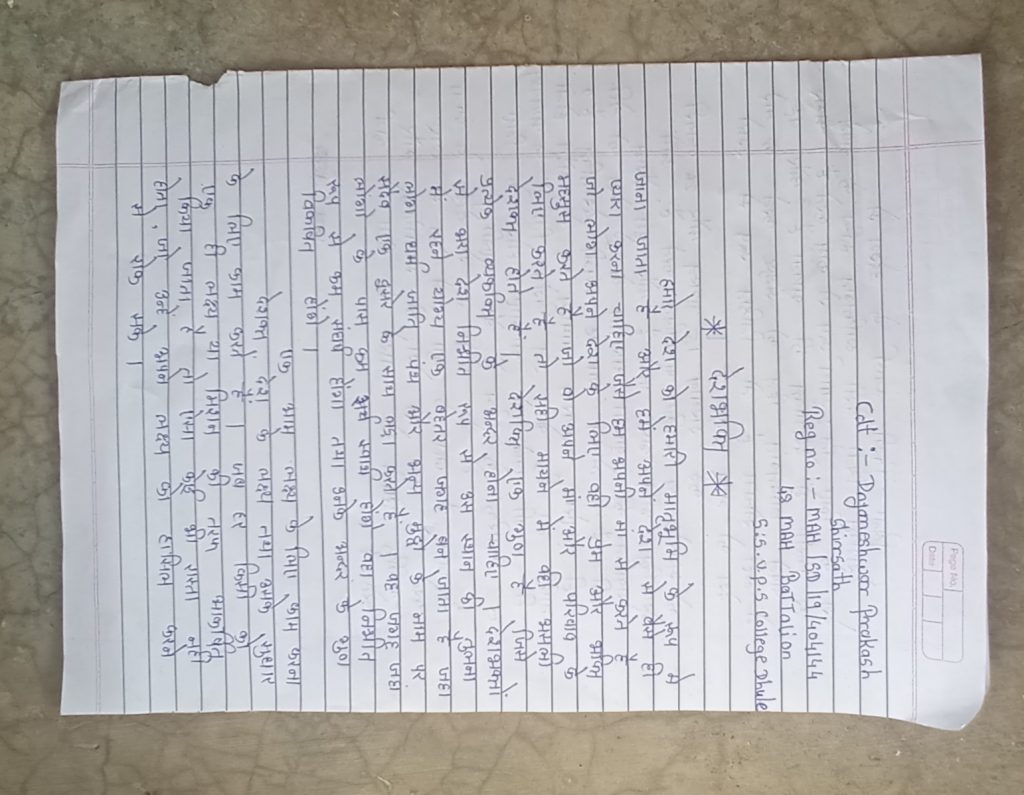 Page No.
Date
Cdt :- Dnyaneshwar Prakash
Shirsath
Reg no :- MAH/SD/19/404144
48 MAH BatTalion
S.S.V.P.S College Dhule
* देशभक्ति *
हमारे देश को हमारी मातृभूमि के रूप में
जाना जाता है और हमे अपने देश से वैसे ही
प्यार करना चाहिए जैसे हम अपनी माँ से करते है
जो लोग अपने देश के लिए वही प्रेम और भक्ति
महसुस करते है जो वे अपनी माँ और परिवार के
लिए करते है तो सही मायने में वही असली
देशभक्त होते है । देशभक्ति एक गुण है जिसे
प्रत्येक व्यक्ति के अन्दर होना चाहिए । देशभक्तों
से भरा देश निश्चीत रूप से उस स्थान की तुलना
में रहने योग्य एक बेहतर जगह बन जाता है जहा
लोग धर्म जाति पंथ और अन्य मुद्दों के नाम पर
सदैव एक दुसरे के साथ लड़ा करते है । वह जगह जहां
लोगो के पास कम स्वार्थ होगा वहा निश्चीत
रूप से कम संघर्ष होगा तथा उनके अन्दर के गुण
विकसित होंगे ।
एक साथ लक्ष्य के लिए काम करना
देशभक्त, देश के लक्ष्य तथा उसके सुधार
के लिए काम करते है । जब हर किसी को
एक ही लक्ष्य या मिशन की तरफ आकर्षित
किया जाता है तो ऐसा कोई भी रास्ता नही
होता, जो उन्हे अपने लक्ष्य को हासिल करने
से रोक सके ।